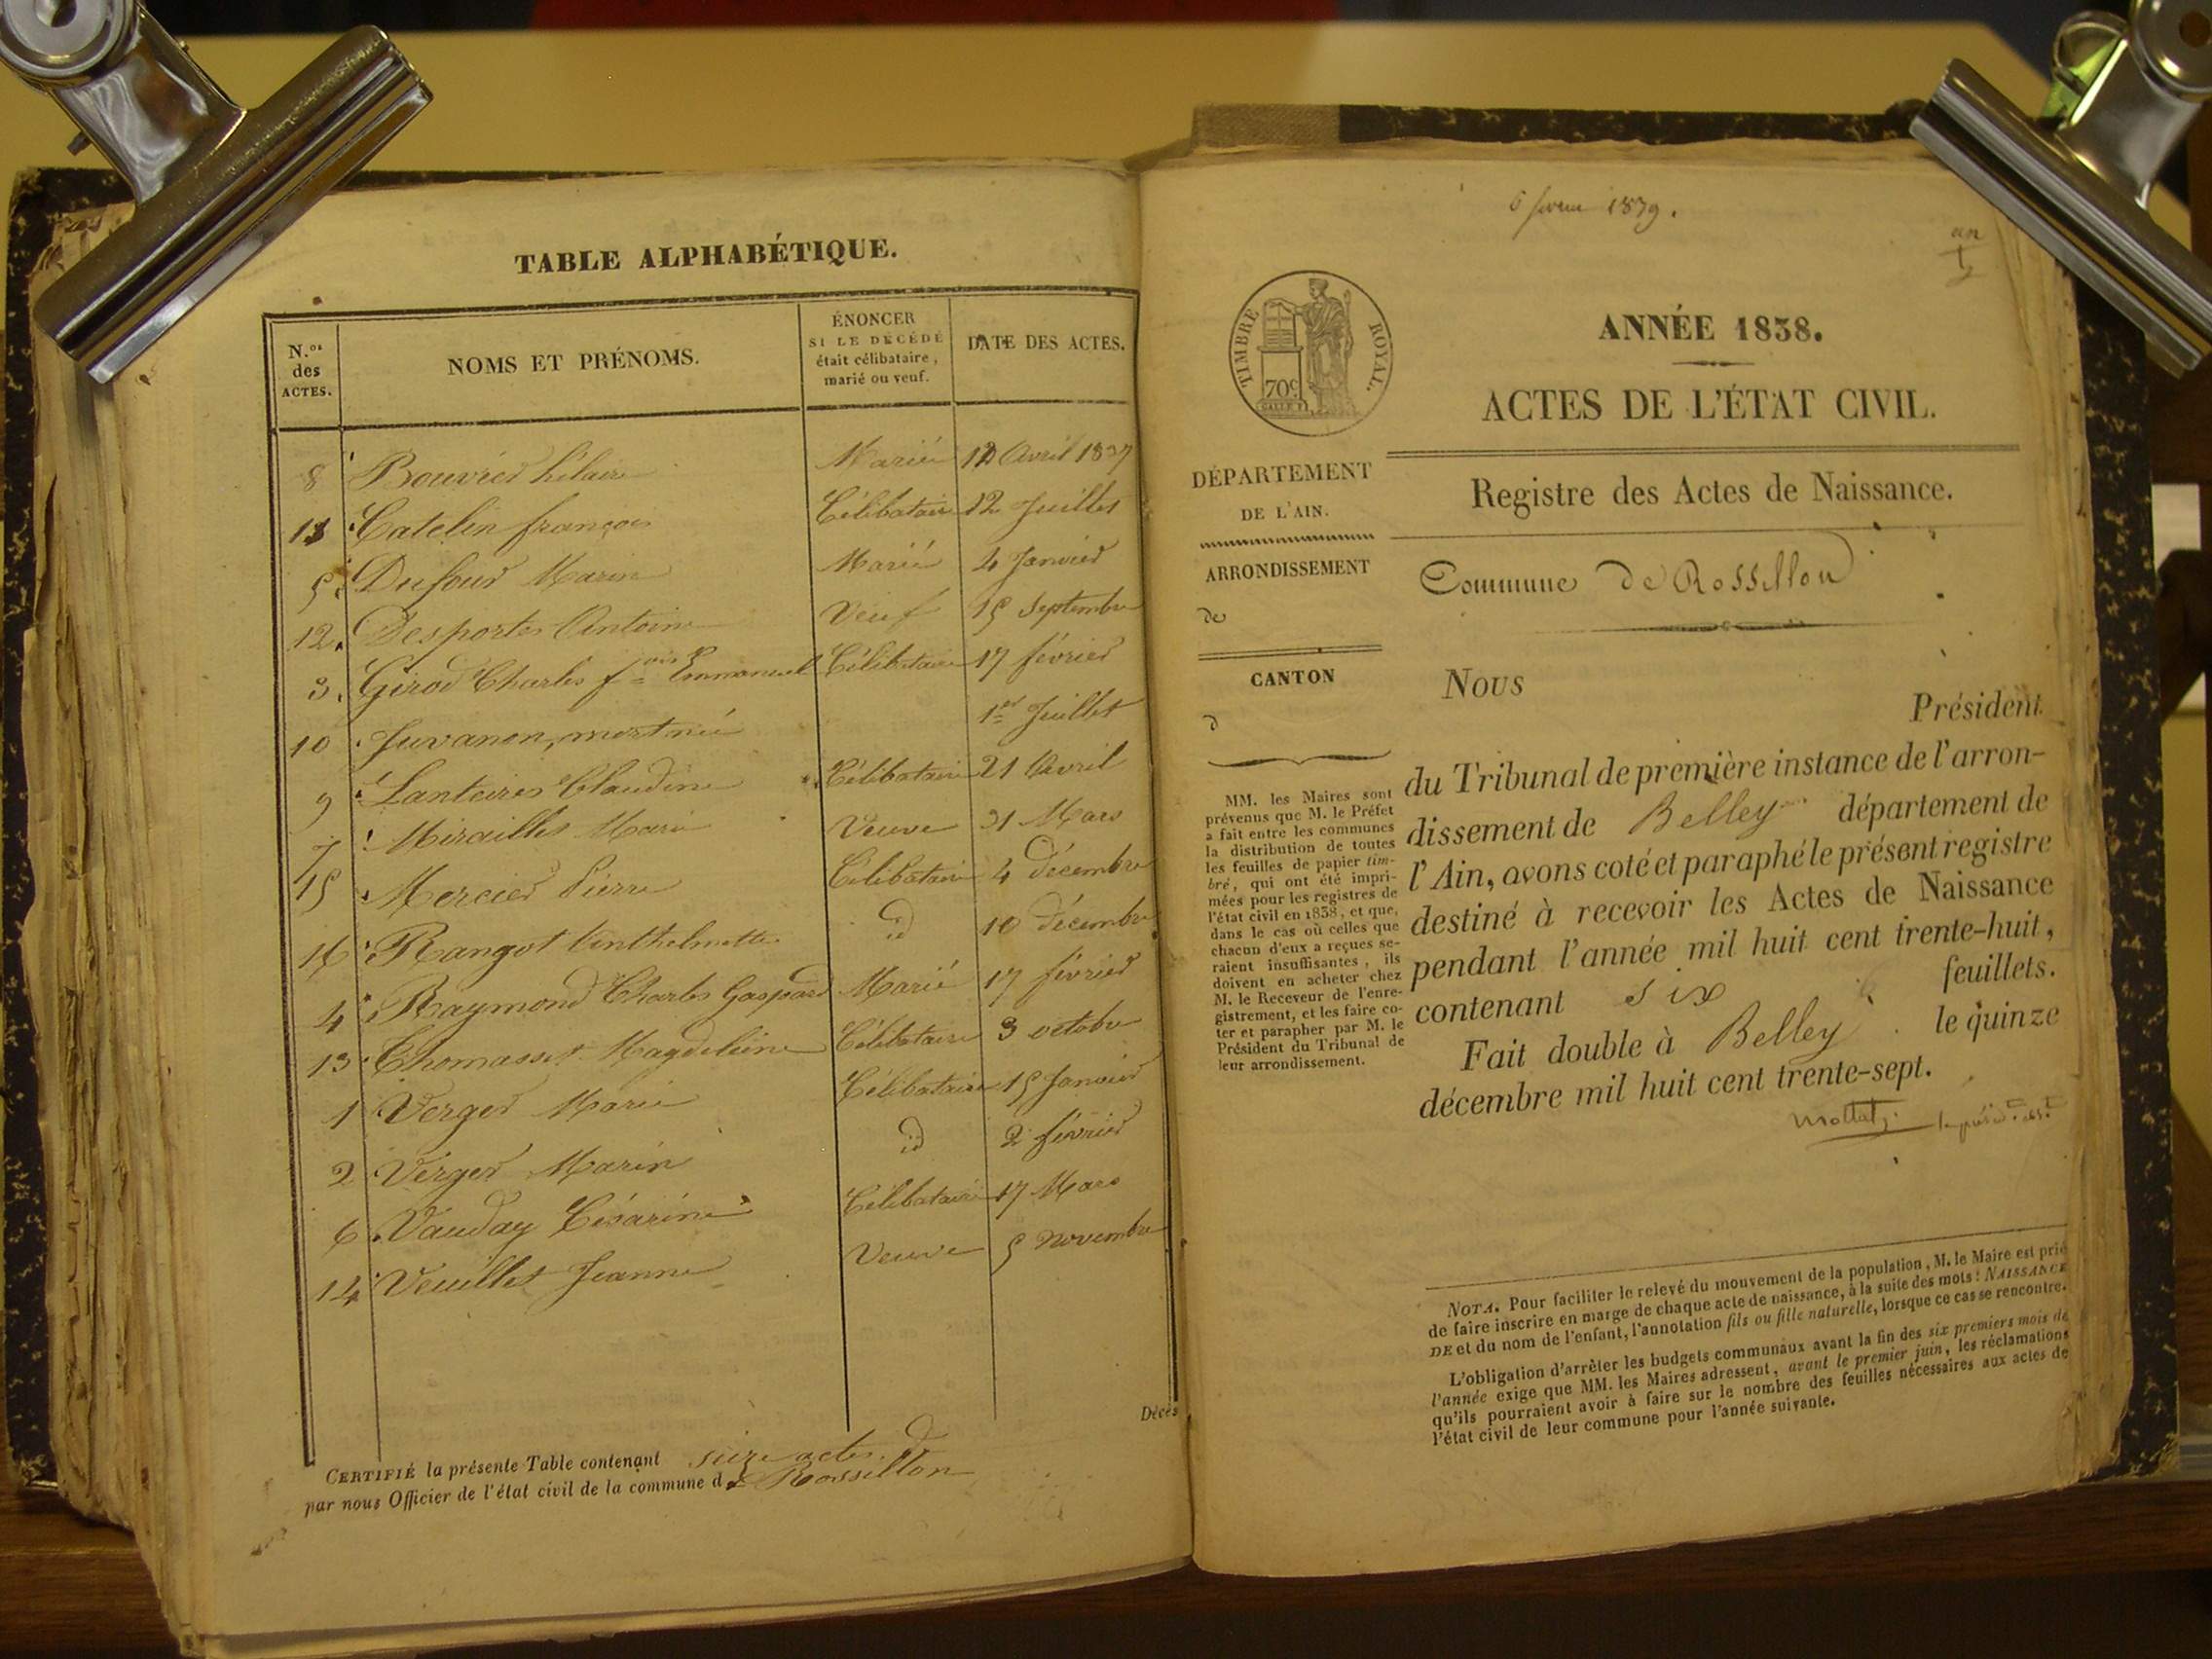 TABLE ALPHABÉTIQUE.
N.os des ACTES.
NOMS ET PRÉNOMS.
ÉNONCER
SI LE DÉCÉDÉ
était célibataire,
marié ou veuf.
DATE DES ACTES.
8 Bouvier hilaire Marié 12 Avril 1837
11 Catelin françois Célibataire 12 Juillet
5 Dufour Marin Marié 4 Janvier
12. Desportes Antoine Veuf 15 Septembre
3. Girod Charles f.ois Emmanuel Célibataire 17 février
10 Juvanon, mort né 1er Juillet
9 Lantaires Claudine Célibataire 21 Avril
7 Mirailles Marie Veuve 31 Mars
15 Mercier Pierre Célibataire 4 décembre
16 Rangot Anthelmette id 10 décembre
4 Raymond Charles Gaspard Marié 17 février
13 Thomasset Magdeleine Célibataire 3 octobre
1 Verger Marie Célibataire 15 Janvier
2 Verger Marin id 2 février
6 Vauday Césarine Célibataire 17 Mars
14 Veuillet Jeanne Veuve 5 Novembre
Décès
CERTIFIÉ la présente Table contenant seize actes.
par nous Officier de l'état civil de la commune de Rossillon
6 1839.
TIMBRE ROYAL.
70c
ANNÉE 1838.
ACTES DE L'ÉTAT CIVIL.
DÉPARTEMENT
DE L'AIN.
Registre des Actes de Naissance.
ARRONDISSEMENT
de
Commune de Rossillon
CANTON
d
Nous
Président
du Tribunal de première instance de l'arron-
dissement de Belley département de
l'Ain, avons coté et paraphé le présent registre
destiné à recevoir les Actes de Naissance
pendant l'année mil huit cent trente-huit,
contenant six feuillets.
Fait double à Belley le quinze
décembre mil huit cent trente-sept.
MM. les Maires sont
prévenus que M. le Préfet
a fait entre les communes
la distribution de toutes
les feuilles de papier tim-
bré, qui ont été impri-
mées pour les registres de
l'état civil en 1838, et que,
dans le cas où celles que
chacun d'eux a reçues se-
raient insuffisantes, ils
doivent en acheter chez
M. le Receveur de l'enre-
gistrement, et les faire co-
ter et parapher par M. le
Président du Tribunal de
leur arrondissement.
NOTA. Pour faciliter le relevé du mouvement de la population, M. le Maire est prié
de faire inscrire en marge de chaque acte de naissance, à la suite des mots: NAISSANCE
DE et du nom de l'enfant, l'annotation fils ou fille naturelle, lorsque ce cas se rencontre.
L'obligation d'arrêter les budgets communaux avant la fin des six premiers mois de
l'année exige que MM. les Maires adressent, avant le premier juin, les réclamations
qu'ils pourraient avoir à faire sur le nombre des feuilles nécessaires aux actes de
l'état civil de leur commune pour l'année suivante.